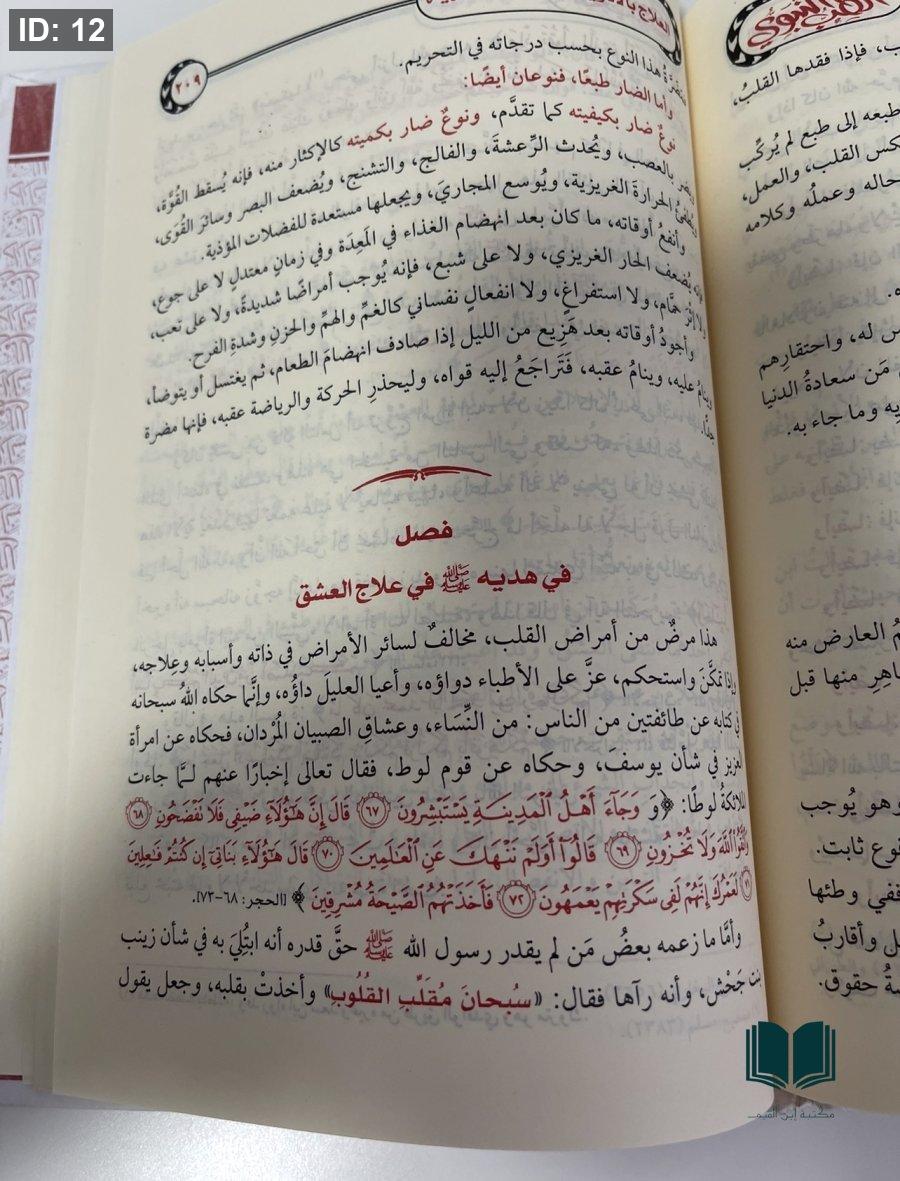 ID: 12
العلاج
الطب النبوي
٢٠٩
هذا النوع بحسب درجاته في التحريم.
وأما الضار طبعًا، فنوعان أيضًا:
نوعٌ ضار بكيفيته كما تقدَّم، ونوعٌ ضار بكميته كالإكثار منه، فإنه يُسقط القُوَّة،
بالعصب، ويُحدث الرِّعشةَ، والفالج، والتشنج، ويُضعف البصر وسائرَ القُوَى،
الحرارةَ الغريزية، ويُوسع المجاريَ، ويجعلها مستعدة للفضلات المؤذية.
وأنفعُ أوقاته، ما كان بعد انهضام الغذاء في المَعِدَة وفي زمانٍ معتدلٍ لا على جوع،
يُضعف الحار الغريزي، ولا على شبع، فإنه يُوجب أمراضًا شديدةً، ولا على تعب،
ولا إثْرَ حمَّام، ولا استفراغٍ، ولا انفعالٍ نفساني كالغمِّ والهمِّ والحزنِ وشدةِ الفرح.
وأجودُ أوقاته بعد هَزِيع من الليل إذا صادف انهضامَ الطعام، ثم يغتسل أو يتوضأ،
وينامُ عليه، وينامُ عقبه، فَتَرَاجَعُ إليه قواه، وليحذرِ الحركة والرياضة عقبه، فإنها مضرة
جدًّا.
فصل
في هديه ﷺ في علاج العشق
هذا مرضٌ من أمراض القلب، مخالفٌ لسائر الأمراض في ذاته وأسبابه وعِلاجه،
وإذا تمكَّنَ واستحكم، عزَّ على الأطباء دواؤه، وأعيا العليلَ داؤُه، وإنَّما حكاه اللهُ سبحانه
في كتابه عن طائفتين من الناس: من النِّسَاء، وعشاقِ الصبيان المُرْدان، فحكاه عن امرأة
العزيز في شأن يوسفَ، وحكاه عن قوم لوط، فقال تعالى إخبارًا عنهم لـمَّا جاءت
الملائكةُ لوطًا: ﴿وَ وَجَآءَ أَهْلُ ٱلْمَدِينَةِ يَسْتَبْشِرُونَ ٦٧ قَالَ إِنَّ هَٰٓؤُلَآءِ ضَيْفِى فَلَا تَفْضَحُونِ ٦٨
وَٱتَّقُوا۟ ٱللَّهَ وَلَا تُخْزُونِ ٦٩ قَالُوٓا۟ أَوَلَمْ نَنْهَكَ عَنِ ٱلْعَٰلَمِينَ ٧٠ قَالَ هَٰٓؤُلَآءِ بَنَاتِىٓ إِن كُنتُمْ فَٰعِلِينَ
٧١ لَعَمْرُكَ إِنَّهُمْ لَفِى سَكْرَتِهِمْ يَعْمَهُونَ ٧٢ فَأَخَذَتْهُمُ ٱلصَّيْحَةُ مُشْرِقِينَ﴾ [الحجر: ٦٨-٧٣].
وأمَّا ما زعمه بعضُ مَن لم يقدر رسول الله ﷺ حقَّ قدره أنه ابتُلِيَ به في شأن زينب
بنت جَحْش، وأنه رآها فقال: «سُبحانَ مُقَلِّبِ القُلُوبِ» وأخذتْ بقلبه، وجعل يقول
فإذا فقدها القلبُ،
طبعَه إلى طبعٍ لم يُركِّب
القلب، والعمل،
حاله وعملُه وكلامه
له، واحتقارِهم
مَن سعادةُ الدنيا
وما جاء به.
العارض منه
منها قبل
وهو يُوجب
ثابت.
وطئها
وأقاربُ
حقوق.
مكتبة إبن القيم